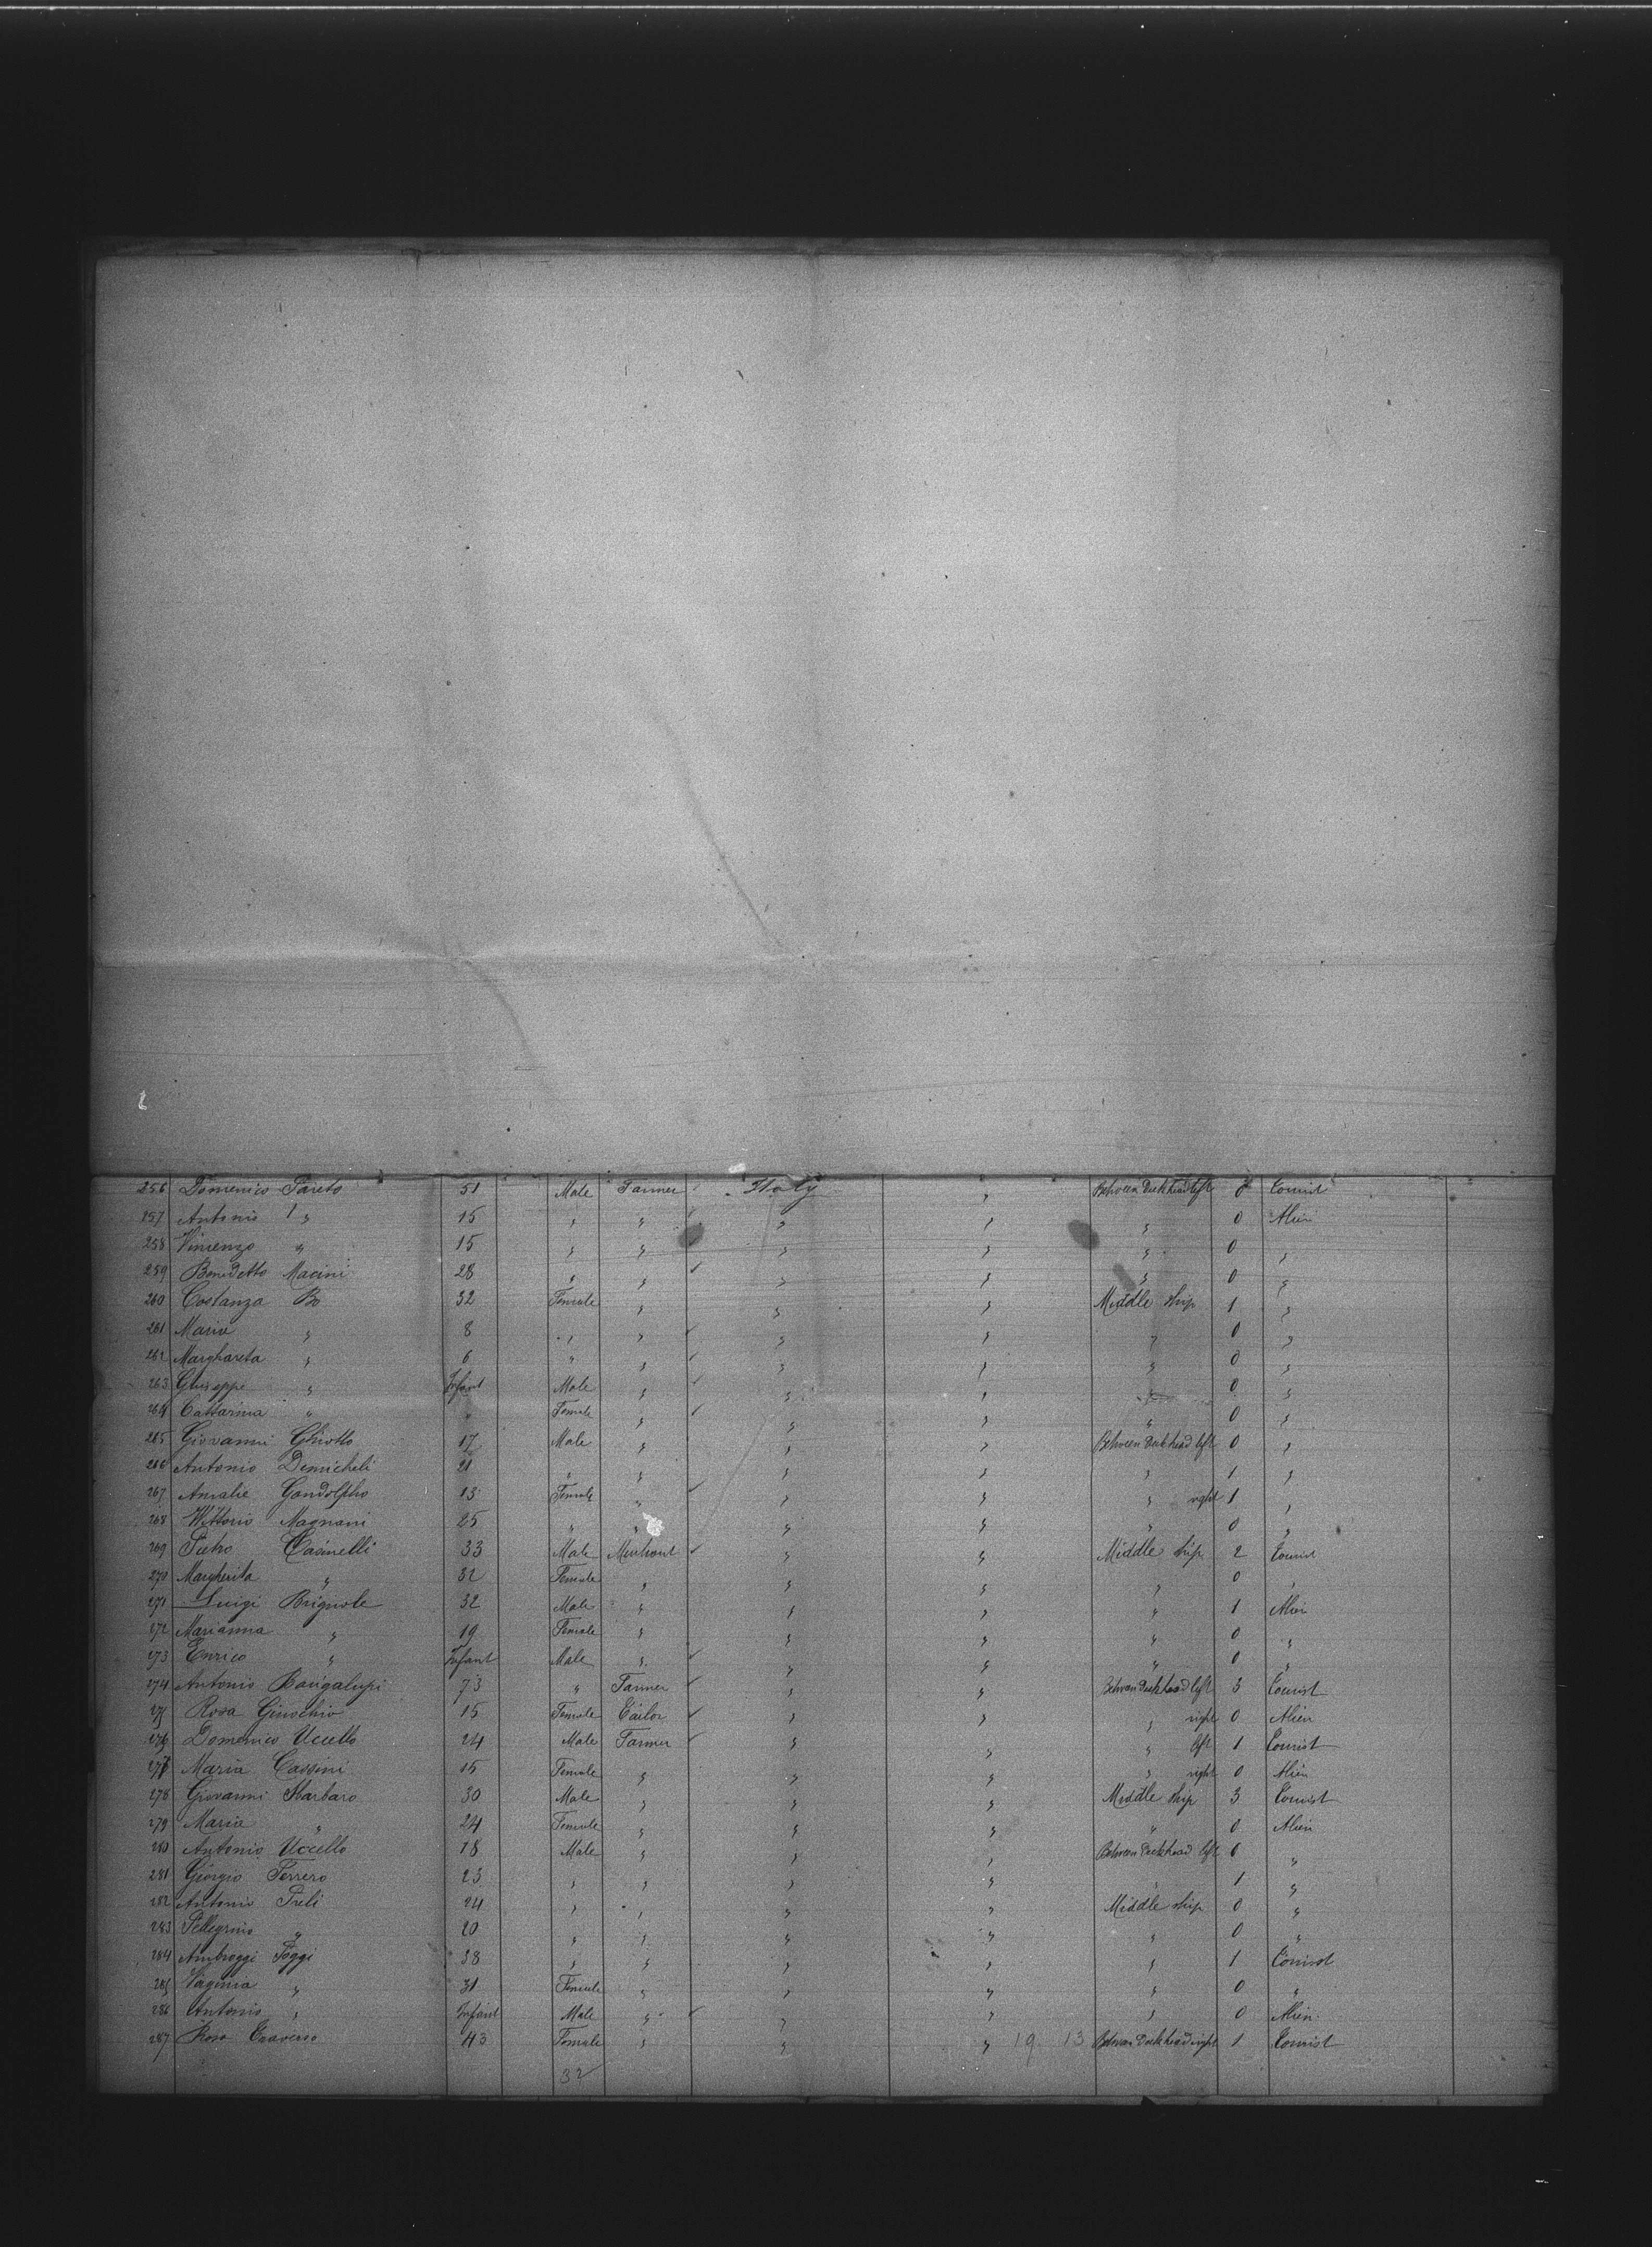 256 Domenico Pareto 51 Male Farmer Italy " Between Deck head left 0 Tourist
257 Antonio " 15 " " " " " 0 Alien
258 Vincenzo " 15 " " " " " 0 "
259 Benedetto Macini 28 " " " " " 0 "
260 Costanza Bo 32 Female " " " Middle ship 1 "
261 Maria " 8 " " " " " 0 "
262 Marghareta " 6 " " " " " 0 "
263 Giuseppe " Infant Male " " " " 0 "
264 Cattarina " " Female " " " " 0 "
265 Giovanni Ghiotto 17 Male " " " Between Deck head left 0 "
266 Antonio Demicheli 21 " " " " " 1 "
267 Amalie Gandolpho 13 Female " " " " right 1 "
268 Vittorio Magnani 25 " " " " " 0 "
269 Pietro Casinelli 33 Male Merchant " " Middle ship 2 Tourist
270 Margherita " 32 Female " " " " 0 "
271 Luigi Brignole 32 Male " " " " 1 Alien
272 Marianna " 19 Female " " " " 0 "
273 Enrico " Infant Male " " " " 0 "
274 Antonio 73 " Farmer " " Between Deck head left 3 Tourist
275 Rosa Ginochio 15 Female Tailor " " " right 0 Alien
276 Domenico Uccello 24 Male Farmer " " " left 1 Tourist
277 Maria Cassini 15 Female " " " " right 0 Alien
278 Giovanni Sbarbaro 30 Male " " " Middle ship 3 Tourist
279 Maria " 24 Female " " " " 0 Alien
280 Antonio Uccello 18 Male " " " Between Deck head left 0 "
281 Giorgio Ferrero 23 " " " " " 1 "
282 Antonio Preli 24 " " " " Middle ship 0 "
283 Pellegrino " 20 " " " " " 0 "
284 Ambroggi Poggi 38 " " " " " 1 Tourist
285 Virginia " 31 Female " " " " 0 "
286 Antonio " Infant Male " " " " 0 Alien
287 Rosa Traverso 43 Female " " " 19 13 Between Deck head right 1 Tourist
32